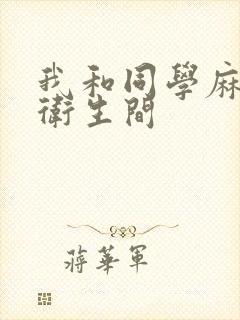 我和同學麻
衛生間
蔣華軍